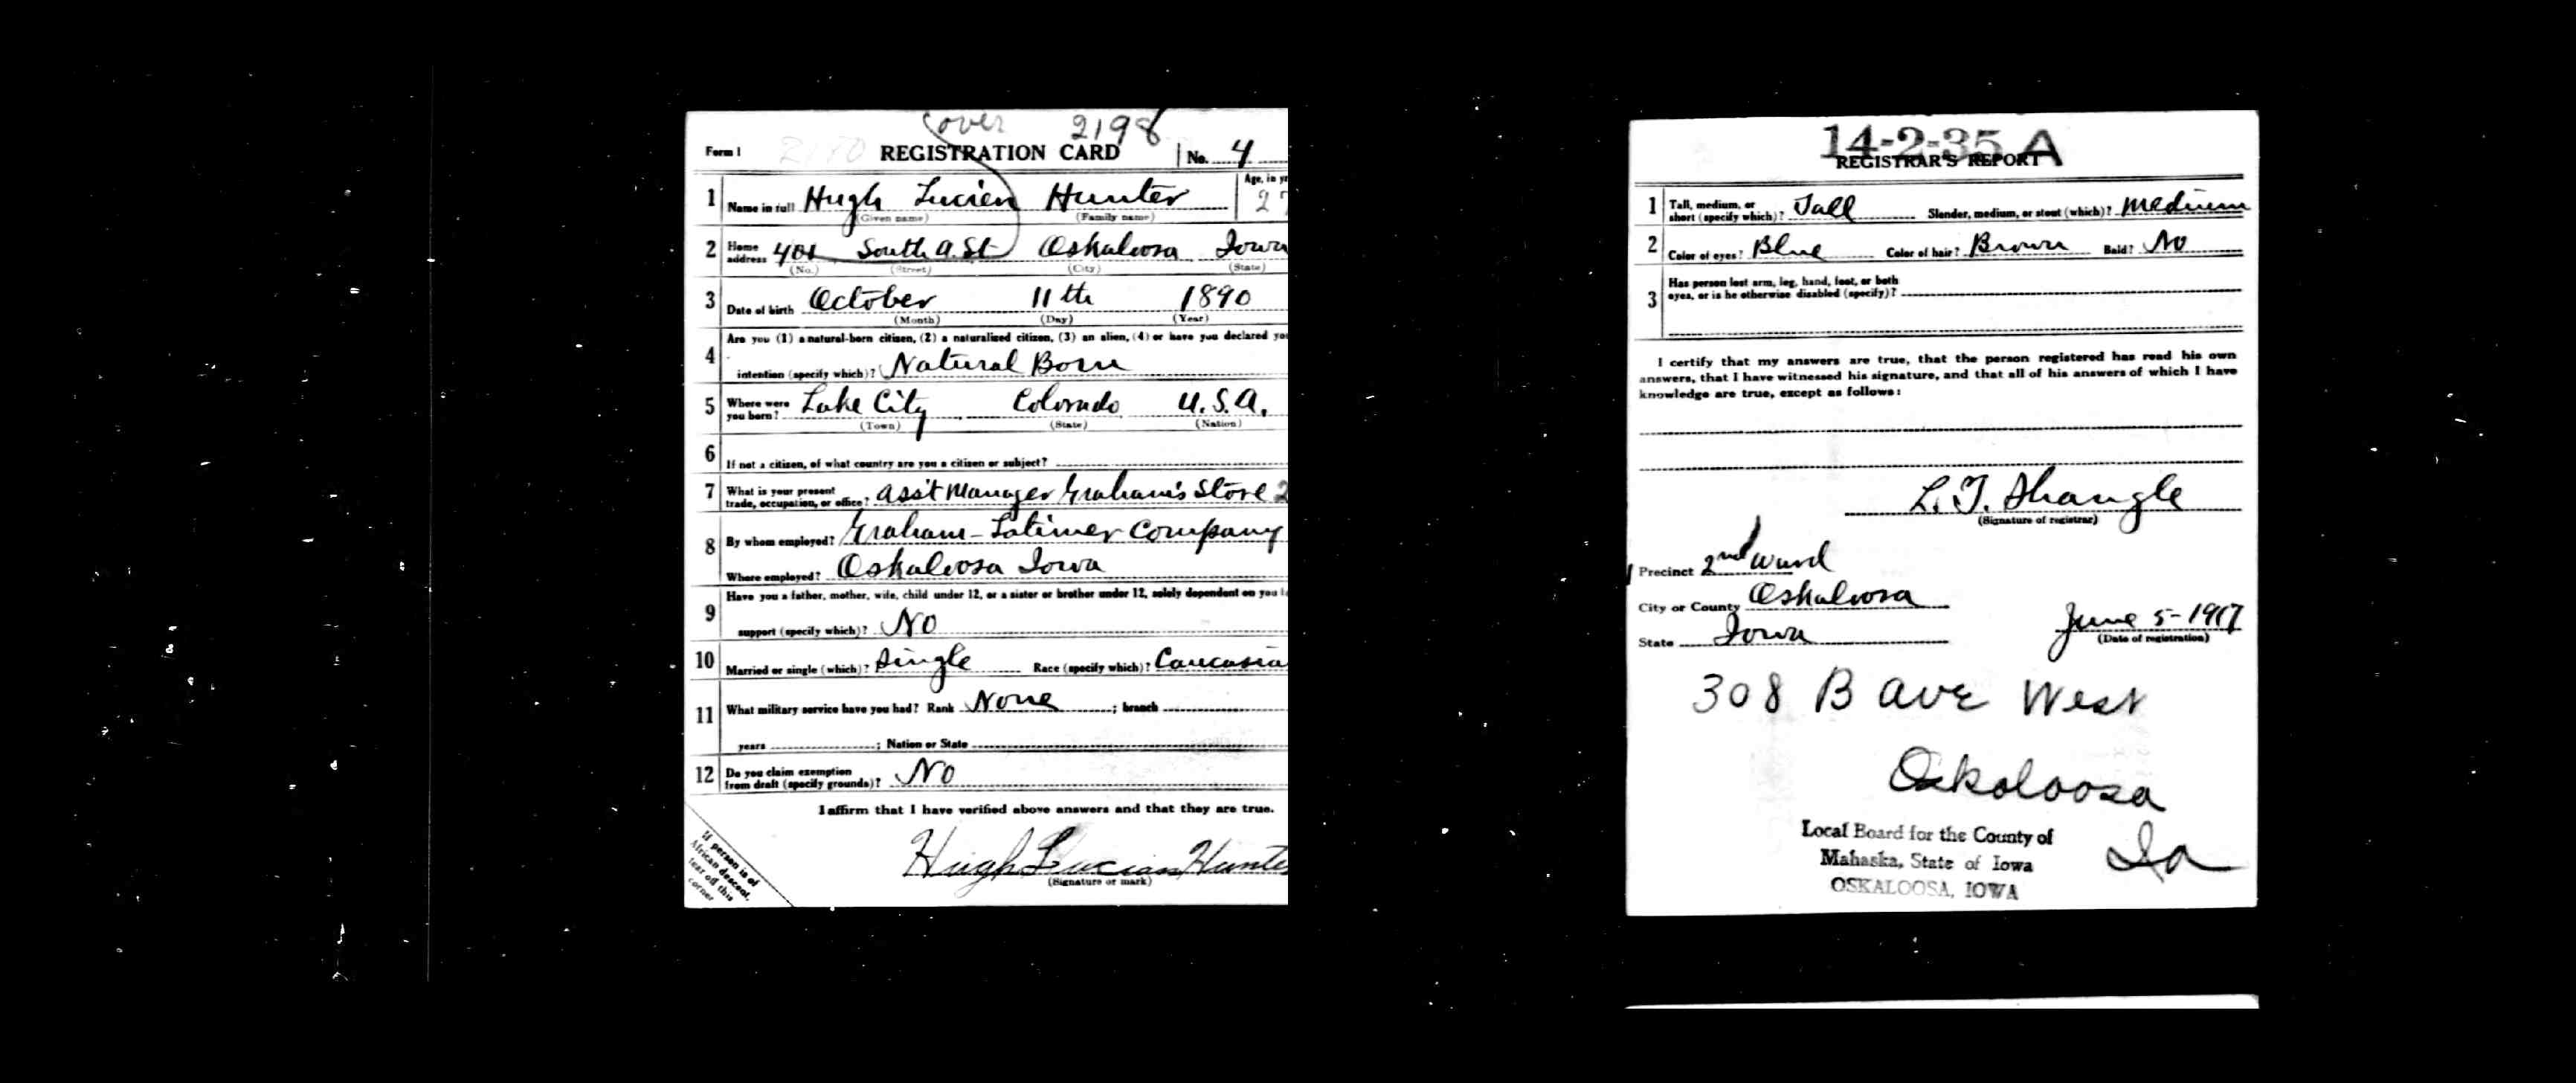 over 2198
Form 1 2170 REGISTRATION CARD No. 4
1 Name in full Hugh Lucien Hunter Age, in yr
(Given name) (Family name) 27
2 Home address 401 South A. St Oskaloosa Iowa
(No.) (Street) (City) (State)
3 Date of birth October 11th 1890
(Month) (Day) (Year)
Are you (1) a natural-born citizen, (2) a naturalized citizen, (3) an alien, (4) or have you declared you
4 intention (specify which)? Natural Born
5 Where were you born? Lake City Colorado U.S.A.
(Town) (State) (Nation)
6 If not a citizen, of what country are you a citizen or subject?
7 What is your present trade, occupation, or office? Ass't Manager Graham's Store 2
8 By whom employed? Graham-Latimer Company
Where employed? Oskaloosa Iowa
Have you a father, mother, wife, child under 12, or a sister or brother under 12, solely dependent on you
9 support (specify which)? No
10 Married or single (which)? Single Race (specify which)? Caucasia
11 What military service have you had? Rank None ; branch
years ; Nation or State
12 Do you claim exemption from draft (specify grounds)? No
I affirm that I have verified above answers and that they are true.
Hugh Lucian Hunte
(Signature or mark)
If person is of
African descent,
tear off this
corner
14-2-35 A
REGISTRAR'S REPORT
1 Tall, medium, or short (specify which)? Tall Slender, medium, or stout (which)? Medium
2 Color of eyes? Blue Color of hair? Brown Bald? No
3 Has person lost arm, leg, hand, foot, or both
eyes, or is he otherwise disabled (specify)?
I certify that my answers are true, that the person registered has read his own
answers, that I have witnessed his signature, and that all of his answers of which I have
knowledge are true, except as follows:
L. T. Shangle
(Signature of registrar)
Precinct 2nd Ward
City or County Oskaloosa
State Iowa June 5-1917
(Date of registration)
308 B Ave West
Oskaloosa
Ia
Local Board for the County of
Mahaska, State of Iowa
OSKALOOSA, IOWA